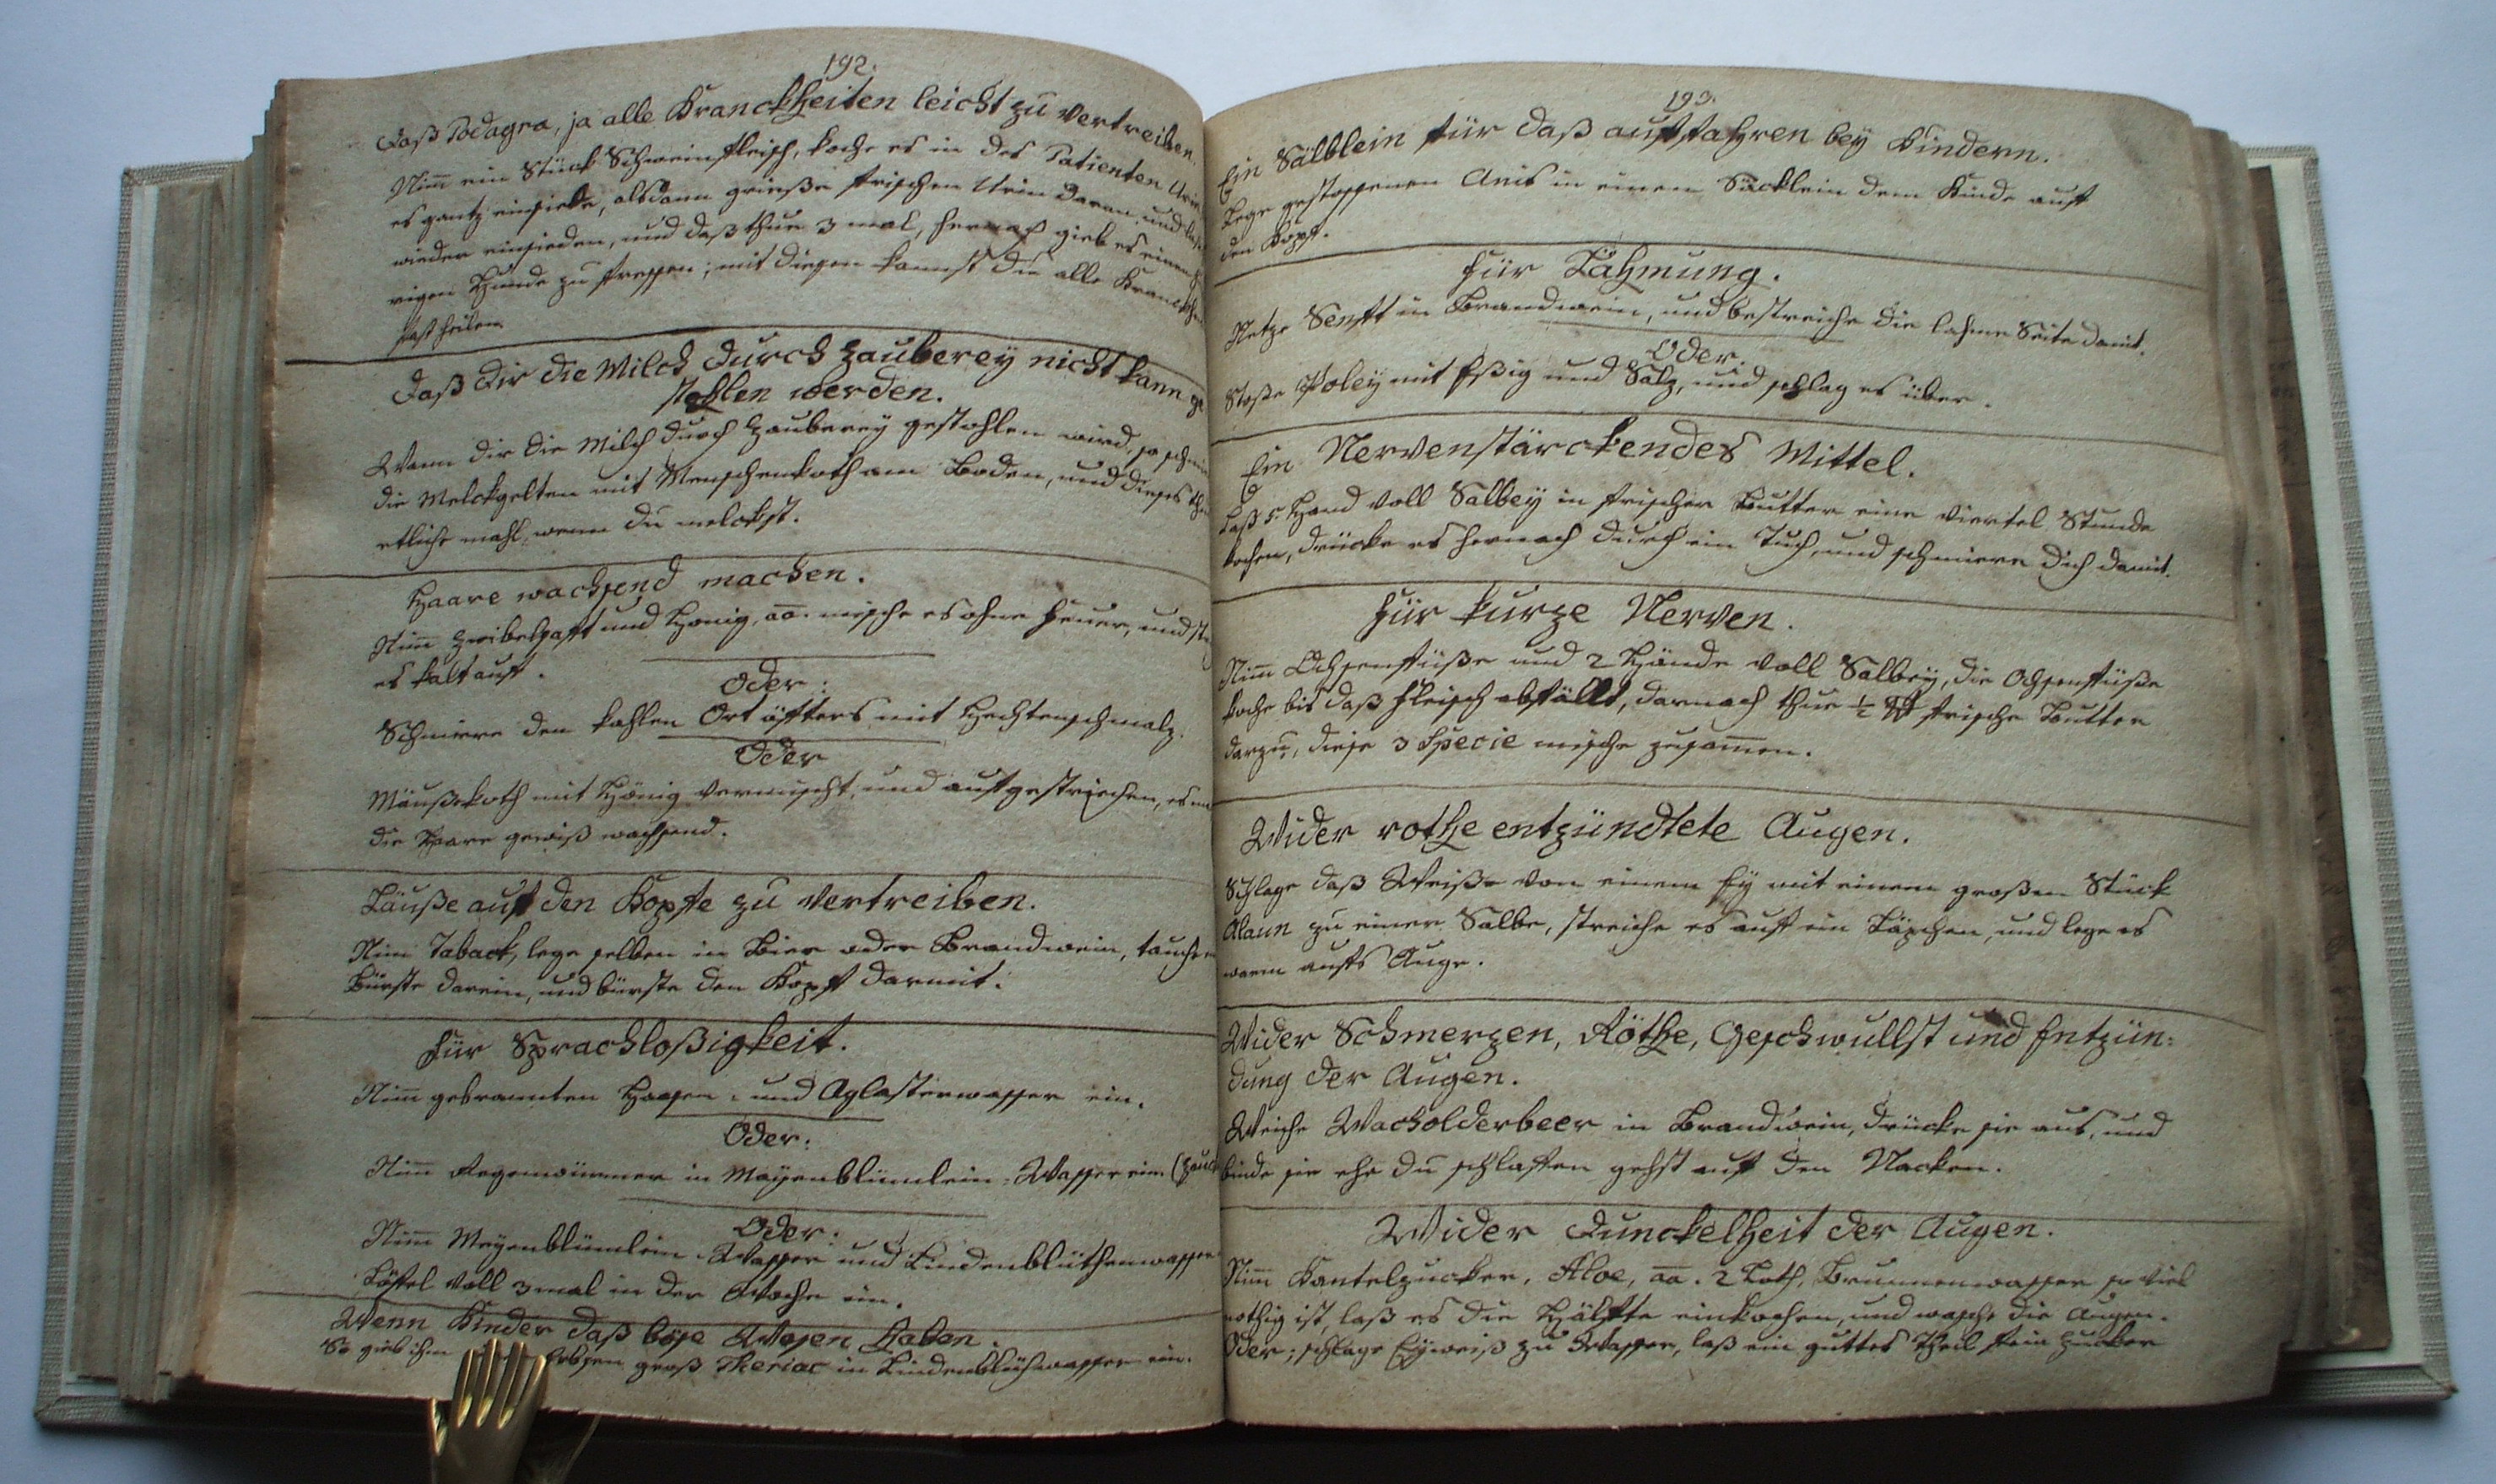 192.
Daß Podagra, ja alle Kranckheiten leicht zu vertreiben.
Nim̅ ein Stück Schweinfleisch, koche es in des Patienten Urin
es gantz einsiede, alsdann gieße frischen Urin daran, und laß
wieder einsieden, und daß thue 3 mal, hernach gieb es einem
rigen Hunde zu fressen; mit diesem kannst du alle Kranckhei
fast heilen.
Daß dir die Milch durch Zauberey nicht kann ge
stohlen werden.
Wann dir die Milch durch Zauberey gestohlen wird, so schmie
die Melckgelten mit Menschenkoth am Boden, und dieses thu
etliche mahl, wenn du melckst.
Haare wachsend machen.
Nim̅ Zwibelsafft und Honig, aa. mische es ohne Feuer, und
es kalt auf.
Oder:
Schmiere den kahlen Ort öffters mit Hechtenschmalz.
Oder
Mäußekoth mit Hönig vermischt, und aufgestrichen, es
die Haare gewiß wachsend.
Läuße auf den Kopfe zu vertreiben.
Nim̅ Taback, lege selben in Bier oder Brandwein, tauche
Bürste darein, und bürste den Kopf darmit.
Für Sprachloßigkeit.
Nim̅ gebrannten Haasen- und Aglasterwasser ein.
Oder:
Nim̅ Regenwürmer in Mayenblümlein-Wasser ein.
Oder:
Nim̅ Mayenblümlein-Wasser und Lindenblüthenwasser
Löffel voll 3 mal in der Woche ein.
Wenn Kinder daß böse Wesen haben.
So gieb ihm Erbsen groß Theriac in Lindenblühwasser ein.
193.
Ein Sälblein für daß auffahren bey Kindern.
Lege gestossenen Anis in einem Säcklein dem Kinde auf
den Kopf.
Für Lähmung.
Netze Senfft in Brandwein, und bestreiche die lahme Seite damit.
Oder.
Stoße Poley mit Eßig und Salz, und schlag es über.
Ein Nervenstärckendes Mittel.
Laß 5. Hand voll Salbey in frischer Butter eine viertel Stunde
kochen, drücke es hernach durch ein Tuch, und schmiere dich damit.
Für kurze Nerven.
Nim̅ Ochsenfüße und 2 Hände voll Salbey, die Ochsenfüße
koche bis daß Fleisch abfällt, darnach thue ½ ℔ frische Butter
darzu, diese 3 Specie mische zusam̅en.
Wider rothe entzündtete Augen.
Schlage daß Weiße von einem Ey mit einem großen Stück
Alaun zu einer Salbe, streiche es auf ein Läpchen, und lege es
warm aufs Auge.
Wider Schmerzen, Röthe, Geschwullst und Entzün-
dung der Augen.
Weiche Wacholderbeer in Brandwein, drücke sie aus, und
binde sie ehe du schlaffen gehst auf den Nacken.
Wider Dunckelheit der Augen.
Nim̅ Kantelzucker, Aloe, aa. 2 Loth, Brunnenwasser so viel
nothig ist, laß es die Hälffte einkochen, und wasche die Augen.
Oder; schlage Eyweiß zu Wasser, laß ein guttes Theil fein Zucker